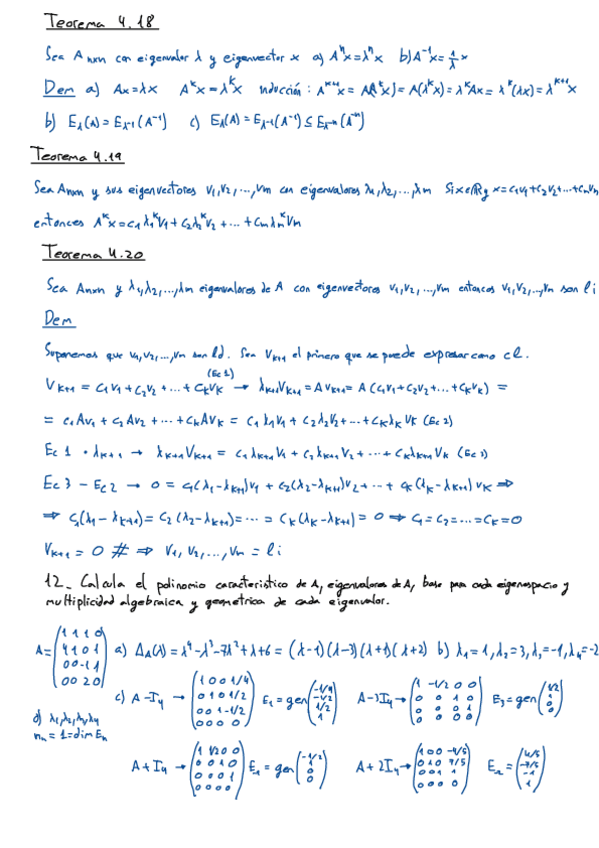 Teorema 4.18
Sea Anxn con eigenvalor λ y eigenvector x a) Aⁿx=λⁿx b) A⁻¹x=1/λ x
Dem a) Ax=λx Aᵏx=λᵏx inducción: Aᵏ⁺¹x = A(Aᵏx)=A(λᵏx)=λᵏAx=λᵏ(λx)=λᵏ⁺¹x
b) Eλ(A)=Eλ⁻¹(A⁻¹) c) Eλ(A)=Eλ⁻¹(A⁻¹)≤Eλ⁻ⁿ(A⁻ⁿ)
Teorema 4.19
Sea Anxn y sus eigenvectores v₁,v₂,...,vm con eigenvalores λ₁,λ₂,...,λm Si x∈ y x=c₁v₁+c₂v₂+...+cmvm
entonces Aᵏx=c₁λ₁ᵏv₁+c₂λ₂ᵏv₂+...+cmλmᵏvm
Teorema 4.20
Sea Anxn y λ₁,λ₂,...,λm eigenvalores de A con eigenvectores v₁,v₂,...,vm entonces v₁,v₂,...,vm son li
Dem
Suponemos que v₁,v₂,...,vm son ld. Sea vₖ₊₁ el primero que se puede expresar como cl.
vₖ₊₁ = c₁v₁+c₂v₂+...+cₖvₖ (Ec 1) → λₖ₊₁vₖ₊₁=Avₖ₊₁=A(c₁v₁+c₂v₂+...+cₖvₖ) =
= c₁Av₁+c₂Av₂+...+cₖAvₖ = c₁λ₁v₁+c₂λ₂v₂+...+cₖλₖvₖ (Ec 2)
Ec 1 · λₖ₊₁ → λₖ₊₁vₖ₊₁ = c₁λₖ₊₁v₁+c₂λₖ₊₁v₂+...+cₖλₖ₊₁vₖ (Ec 3)
Ec 3 - Ec 2 → 0 = c₁(λ₁-λₖ₊₁)v₁+c₂(λ₂-λₖ₊₁)v₂+...+cₖ(λₖ-λₖ₊₁)vₖ ⇒
⇒ c₁(λ₁-λₖ₊₁)=c₂(λ₂-λₖ₊₁)=...=cₖ(λₖ-λₖ₊₁)=0 ⇒ c₁=c₂=...=cₖ=0
vₖ₊₁=0 # ⇒ v₁,v₂,...,vm = li
12_ Calcula el polinomio caracteristico de A, eigenvalores de A, base para cada eigenespacio y
multiplicidad algebraica y geometrica de cada eigenvalor.
A=(1 1 1 0; 4 1 0 1; 0 0 -1 1; 0 0 2 0) a) Δₐ(λ)=λ⁴-λ³-7λ²+λ+6=(λ-1)(λ-3)(λ+1)(λ+2) b) λ₁=1,λ₂=3,λ₃=-1,λ₄=-2
c) A-I₄ → (1 0 0 1/4; 0 1 0 1/2; 0 0 1 -1/2; 0 0 0 0) E₁=gen(-1/4; -1/2; 1/2; 1) A-3I₄→(1 -1/2 0 0; 0 0 1 0; 0 0 0 1; 0 0 0 0) E₃=gen(1/2; 1; 0; 0)
d) λ₁,λ₂,λ₃,λ₄
mₙ=1=dim Eₙ
A+I₄→(1 1/2 0 0; 0 0 1 0; 0 0 0 1; 0 0 0 0) E₋₁=gen(-1/2; 1; 0; 0) A+2I₄→(1 0 0 -4/5; 0 1 0 7/5; 0 0 1 1; 0 0 0 0) E₋₂=(4/5; -7/5; -1; 1)